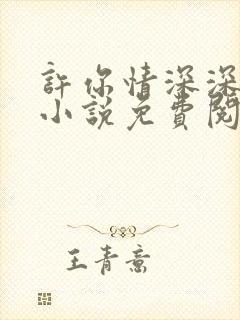 許你情深深
小說免費閱
王青意